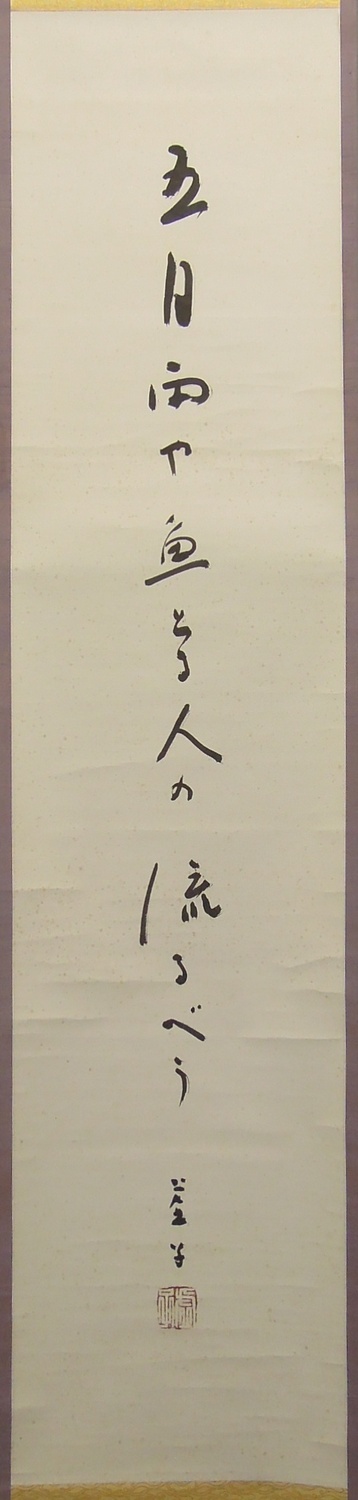 五月雨や魚とる人の流るべう
虚子